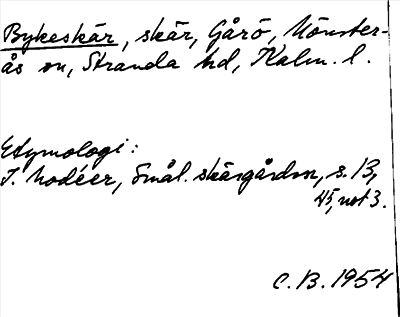 Bykeskär, skär, Gårö, Mönster-
ås sn, Stranda hd, Kalm. l.
Etymologi:
I. Modéer, Smål. skärgården, s. 13,
45, not 3.
C.B. 1954